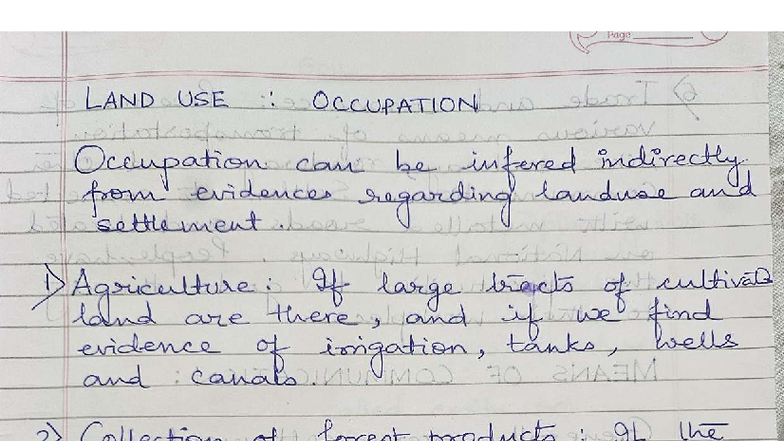 Page
LAND USE :: OCCUPATION
Occupation can be infered indirectly
from evidences regarding landuse and
settlement.
1) Agriculture : If large tracts of cultivated
land are there, and if we find
evidence of irrigation, tanks, wells
and canals.
2) Collection of forest products : If the